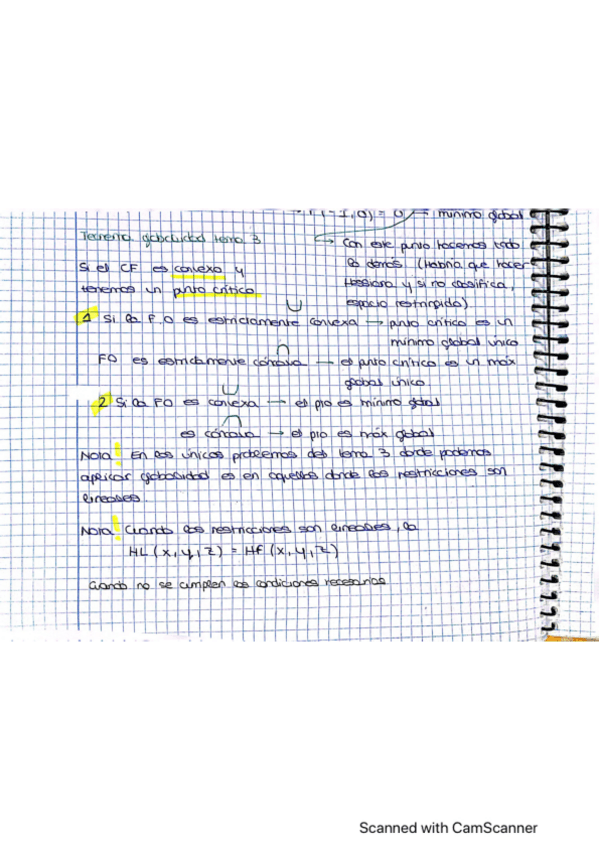 → f(-1,0) = 0 → mínimo global
Teorema globalidad tema 3
→ Con este punto hacemos todo
lo demás (Habría que hacer
Hessiana y si no clasifica,
espacio restringido).
Si el CF es convexo y
tenemos un punto crítico
1 Si la F.O es estrictamente convexa → punto crítico es un
mínimo global único
FO es estrictamente cóncava → el punto crítico es un máx
global único
2 Si la FO es convexa → el pto es mínimo global
es cóncava → el pto es máx global
Nota! En los únicos problemas del tema 3 donde podemos
aplicar globalidad es en aquellos donde las restricciones son
lineales.
Nota! Cuando las restricciones son lineales, la
HL(x,y,z) = Hf(x,y,z)
Cuando no se cumplen las condiciones necesarias
Scanned with CamScanner